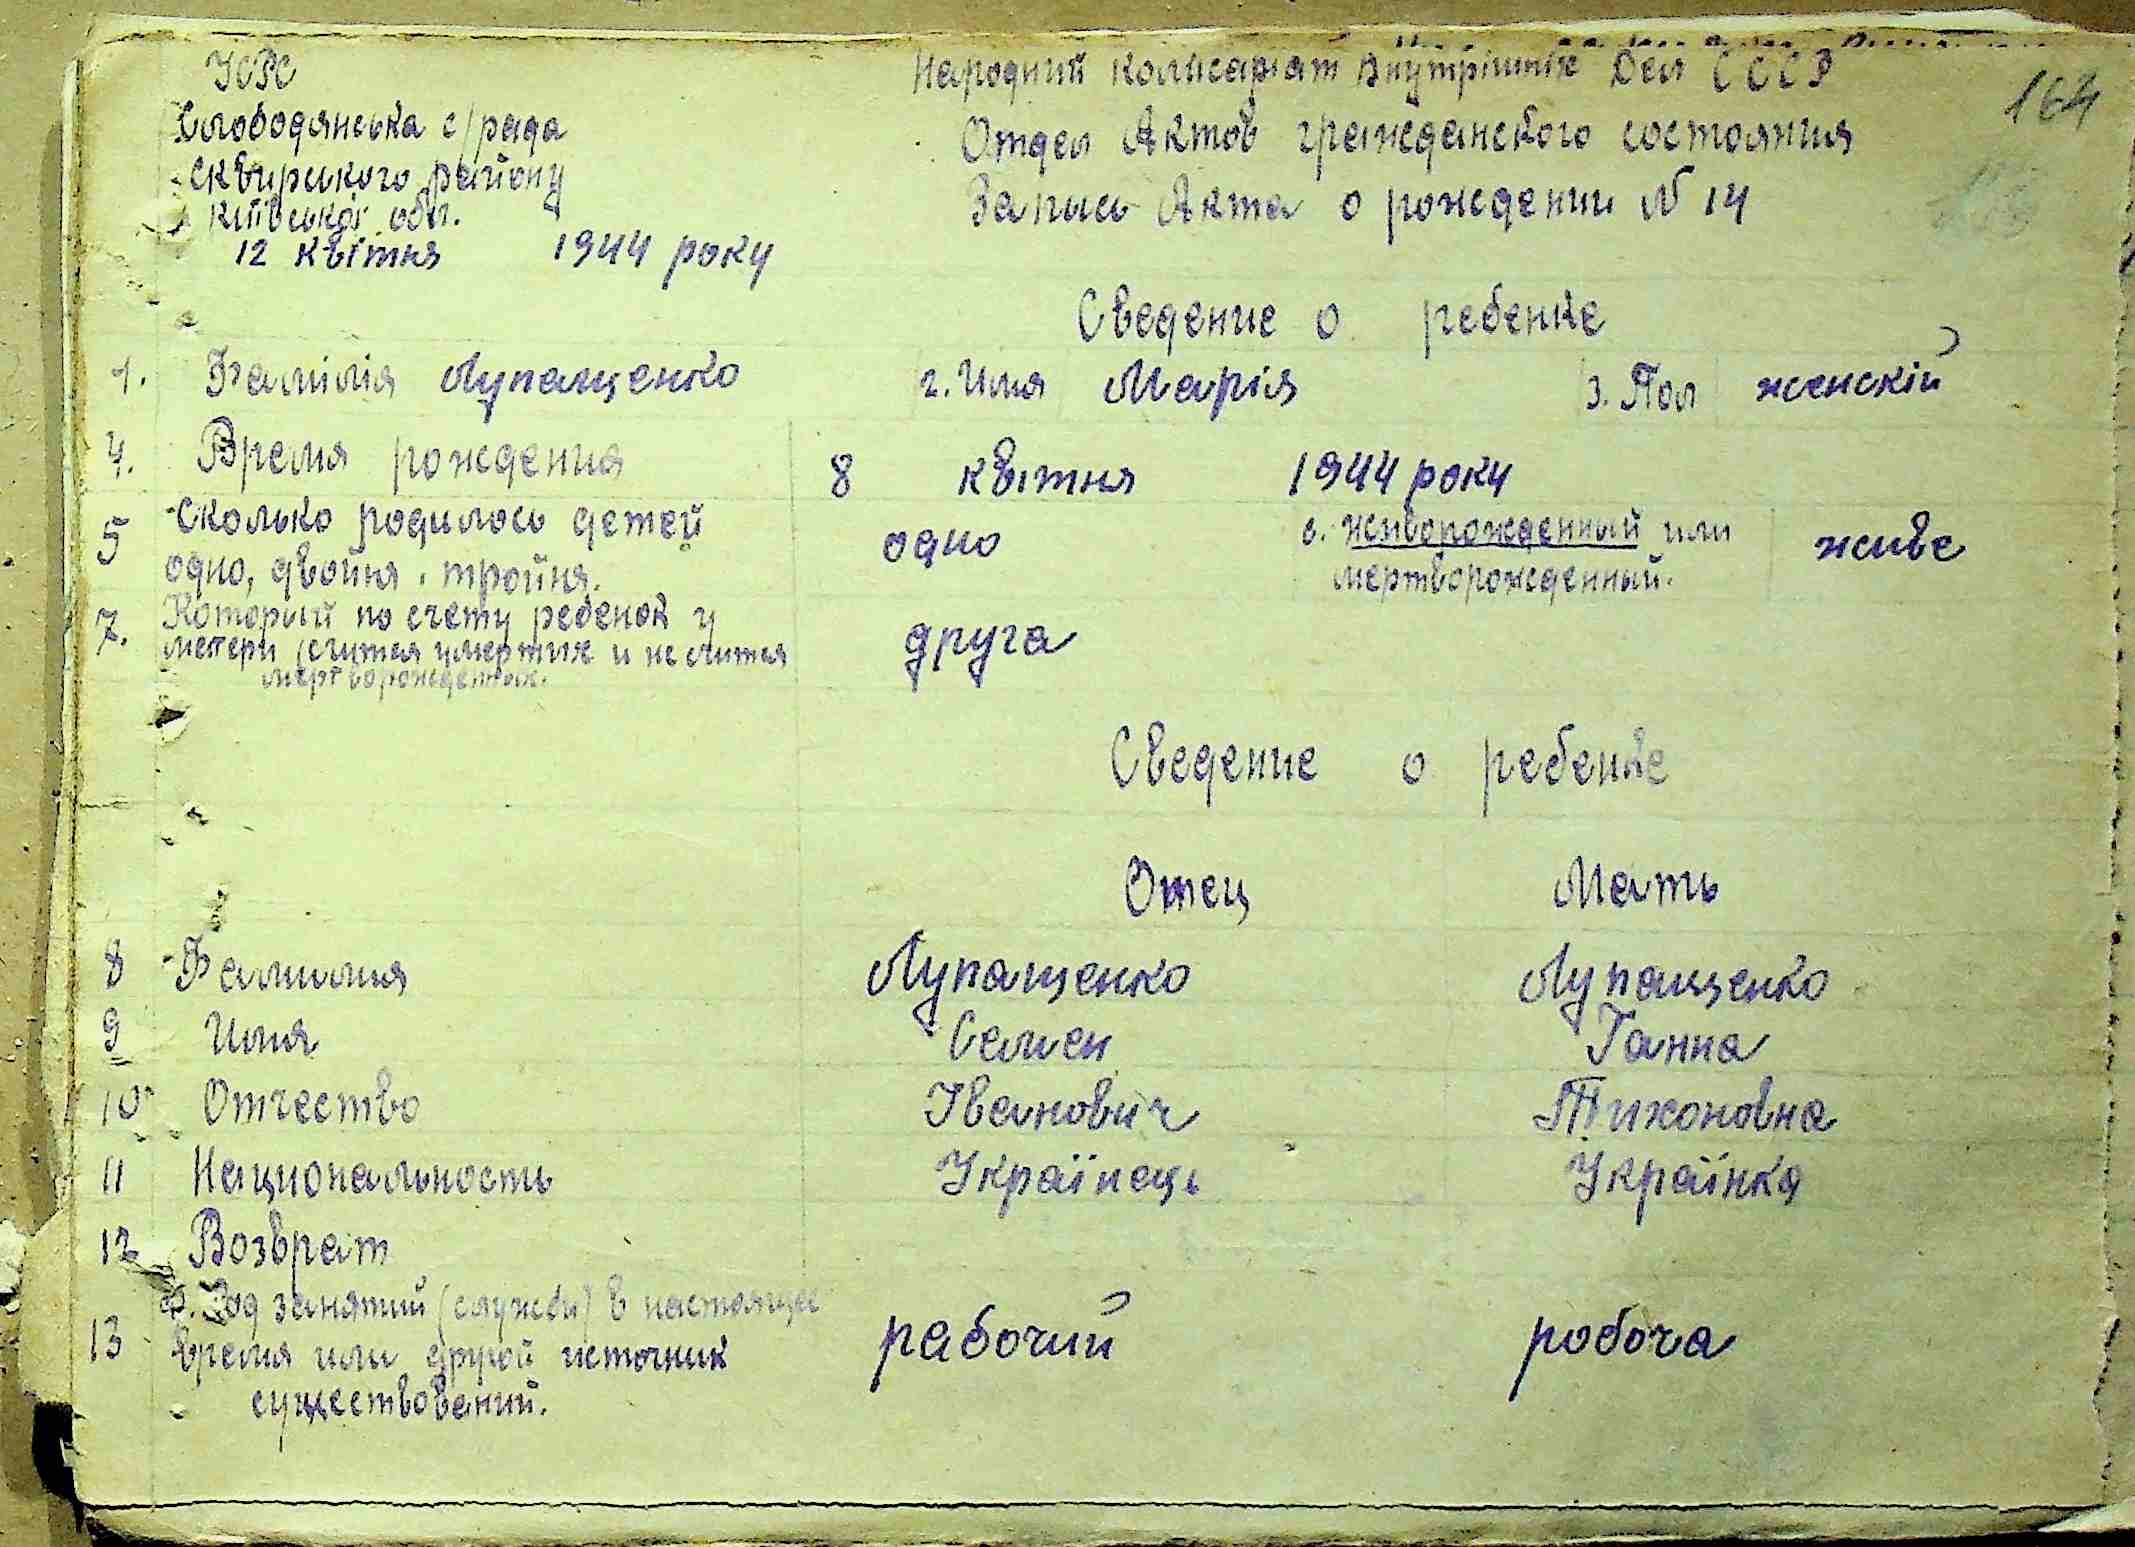 УСРС
Слободянська с/рада
Сквирського району
Київської обл.
12 квітня 1944 року
Народний комісаріат Внутрішніх Дел СССР
164
Отдел Актов гражданского состояния
Запись Акта о рождении N 14
Сведение о ребенке
1. Фамілія Лупащенко 2. Имя Марія 3. Пол женскій
4. Время рождения 8 квітня 1944 року
5 Сколько родилось детей одно 6. живорожденный или живе
одно, двойня, тройня. мертворожденный.
7. Который по счету ребенок у друга
матери (считая умертих и не считая
мертворожденных.
Сведение о ребенке
Отец Мать
8 Фамилия Лупащенко Лупащенко
9 Имя Семен Ганна
10 Отчество Іванович Тихоновна
11 Национальность Українець Українка
12 Возврат
13 Род занятий (службы) в настоящее рабочий робоча
время или другой источник
существований.